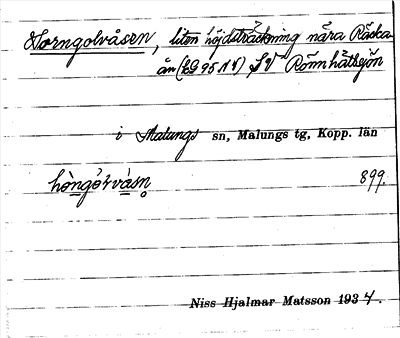 Horngolvåsen, liten höjdsträckning nära Räska
ån (EG 95 NV), SV Rönnhåtsjön
i Malungs sn, Malungs tg, Kopp. län
hòngórvàsn 899.
Niss Hjalmar Matsson 1934.